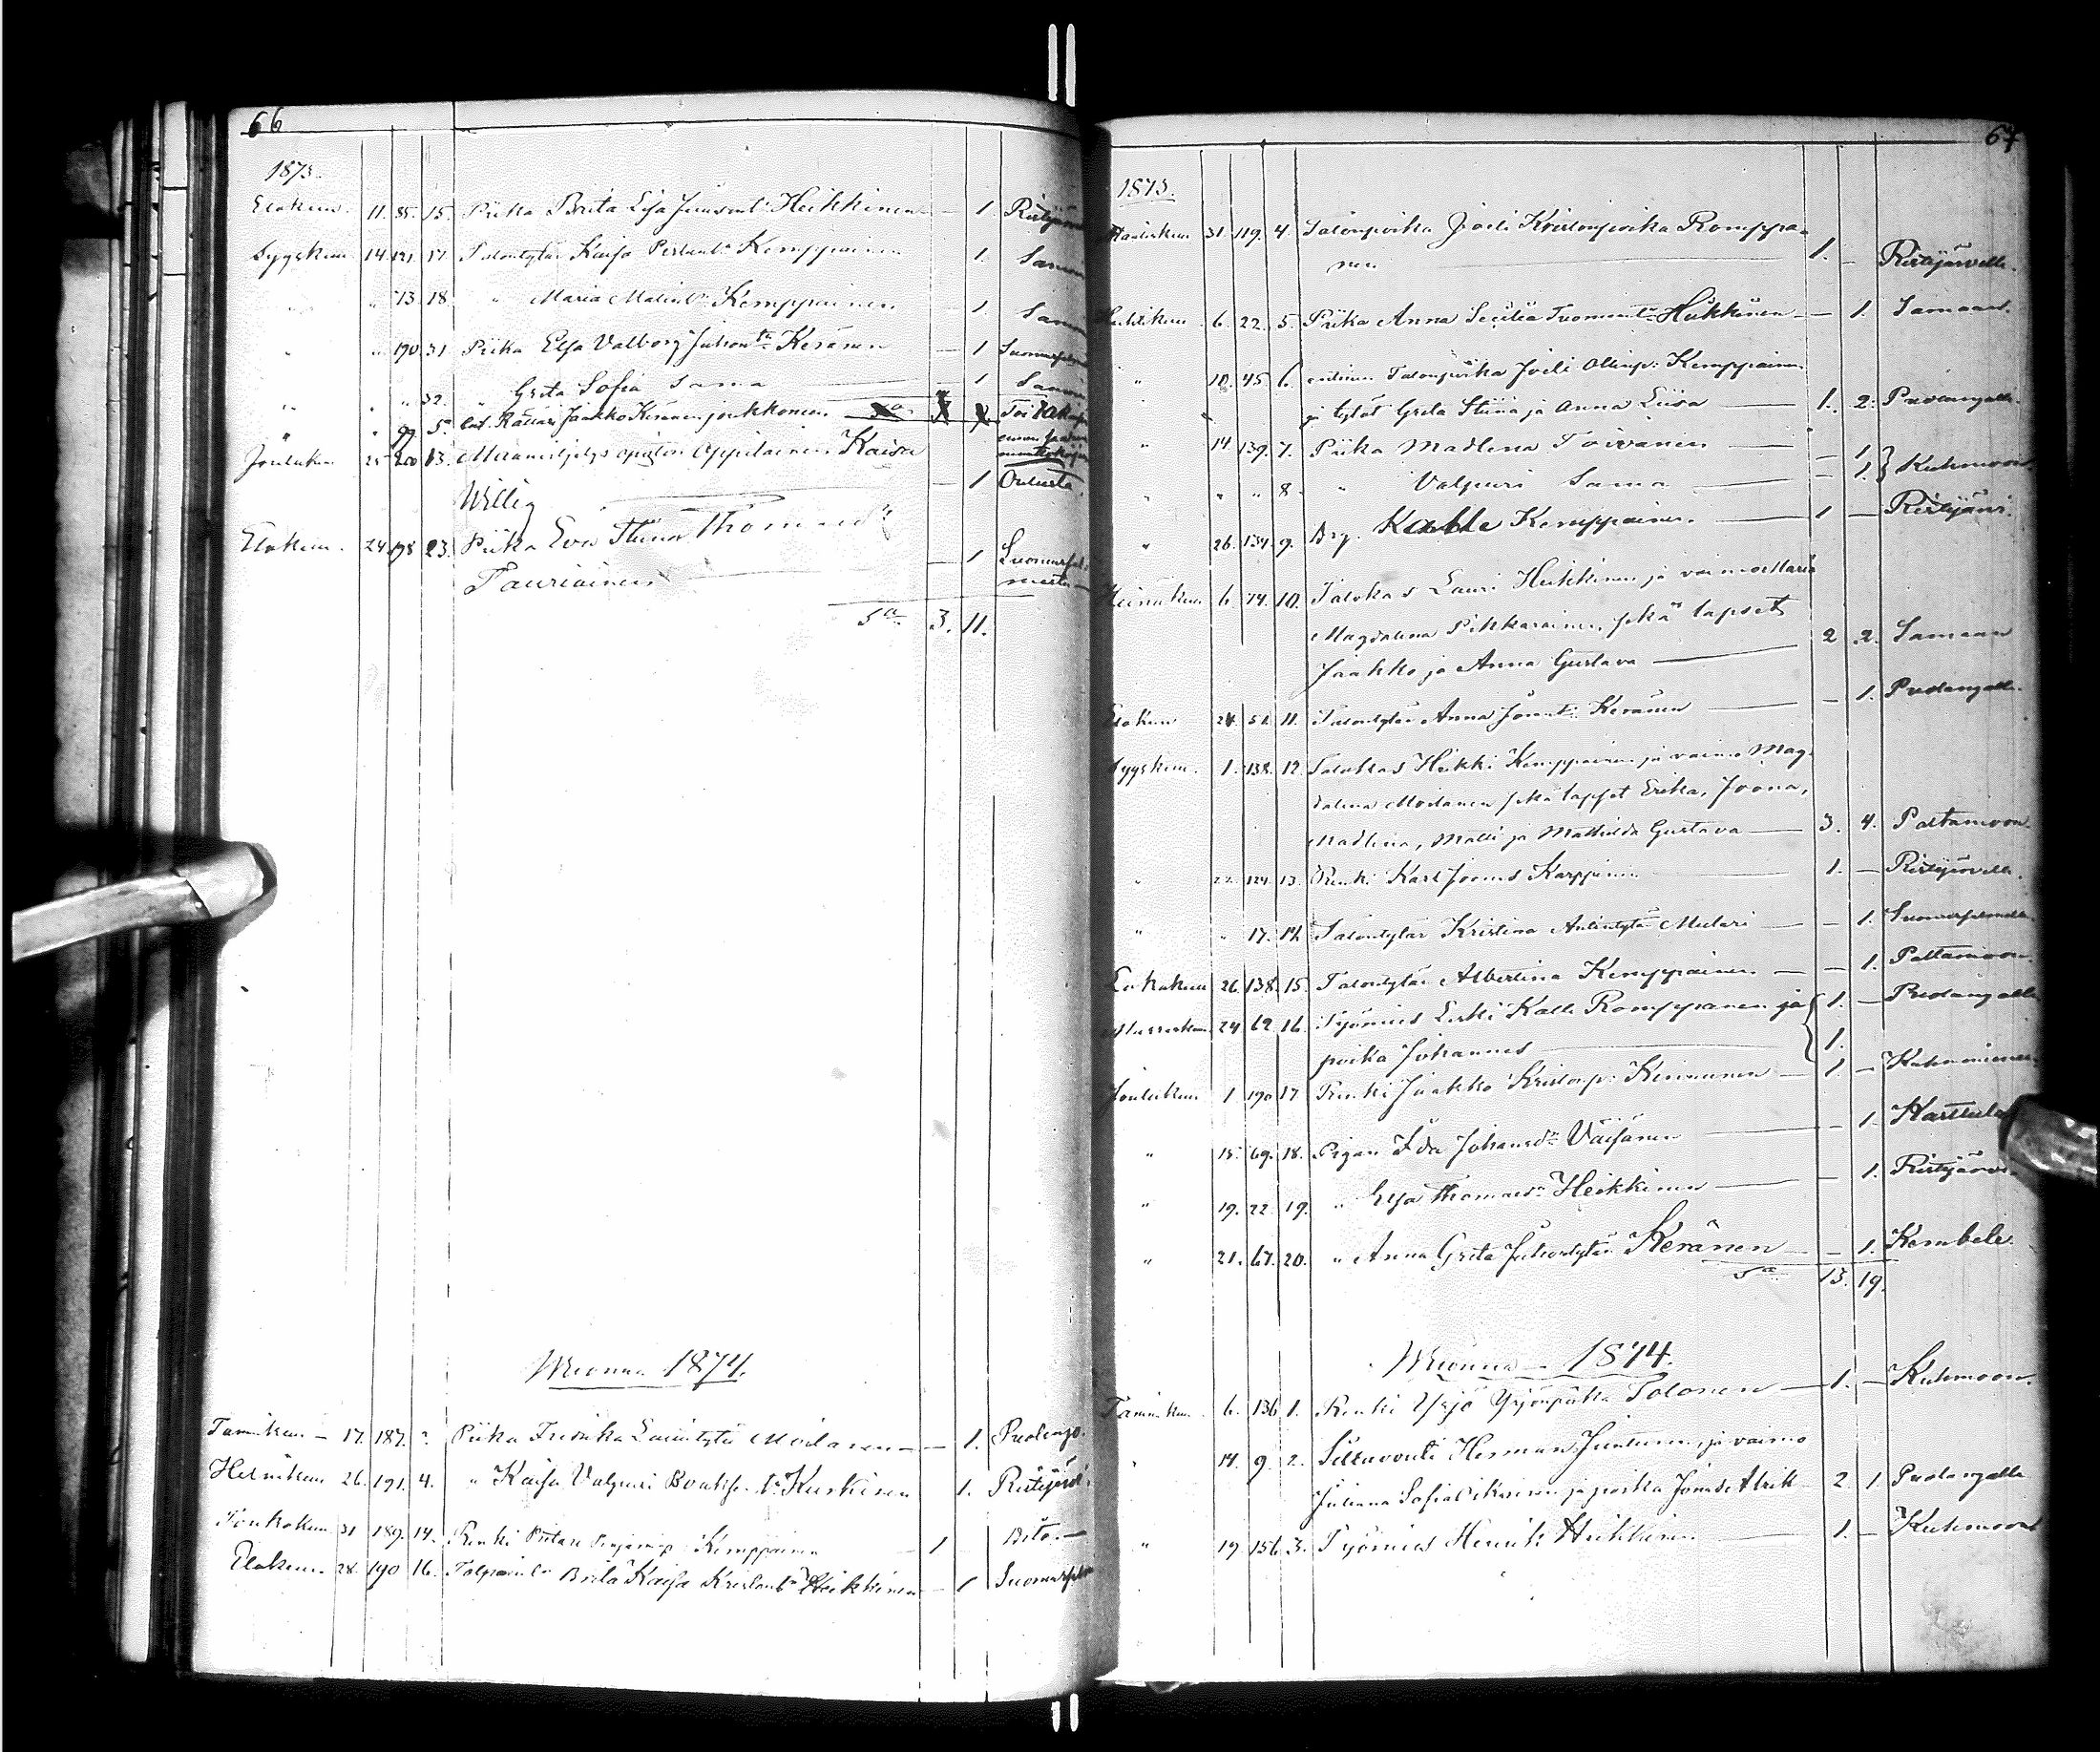 66
1873.
Elokuu. 11. 85. 15. Piika Brita Lisa Juusont. Heikkinen — 1. Ristijärv
Syyskuu 14. 121. 17. Talontytär Kaisa Kemppainen 1. Samoin
" " 73. 18. " Maria Matint. Kemppainen — 1 Samoin
" " 190. 31 Piika Elsa Valborg Juhont. Keränen — 1 Suomussalm
" " " 32. " Greta Sofia Sama — 1 Samoin
" 99. 5. Jaakko Keränen joukkoineen
Jouluku 25 200 13. oppilainen Kaisa
Willig — 1 Oulusta.
Elokuu. 24. 198 23. Piika Eva Stiina Thomasd.
Tauriainen — 1 Suomussal-
mesta
Sa. 3. 11.
Wuonna 1874.
Tammikuu — 17. 187. Piika Fredrika Laurintytär Moilanen — 1. Pudasjä.
Helmikuu 26. 191. 4. " Kaisa Valpuri t. Kurkinen 1. Ristijärvi
Toukokuu 31 189. 14. Renki Kemppainen 1 Dito —
Elokuu. 28. 190 16. Brita Kaisa Krist. Heikkinen — 1 Suomussalm
67
1873.
Maaliskuu 31. 119. 4. Talonpoika Joeli Kristonpoika Romppai-
nen 1. — Ristijärvelle.
Huhtikuu 6. 22. 5. Piika Anna Secilia Tuomant. Heikkinen — 1. Samaan.
" 10. 45. 6. entinen Talonpoika Joeli Ollinp. Kemppainen
ja tytöt Greta Stiina ja Anna Liisa — 1. 2. Puolangalle.
" 14. 139. 7. Piika Madlena Toivanen — 1.
" " " 8. " Valpuri Sama — 1. } Kuhmoon.
" 26. 134. 9. Drg. Kalle Kemppainen. — 1 — Ristijärvi.
Heinäkuu 6. 74. 10. Talokas Lauri Heikkinen ja vaimo Maria
Magdalena Pikkarainen, sekä lapset
Jaakko ja Anna Gustava — 2 2. Samaan
Elokuu 24. 51. 11. Talontytär Anna Keränen — 1. Puolangalle.
Syyskuu. 1. 138. 12. Talokas Heikki Kemppainen ja vaimo Mag-
dalena Moilanen sekä lapset Erika, Joona,
Madlena, Matti ja Mathilda Gustava — 3. 4. Paltamoon.
" 22. 124. 13. Renki Karl Joonas Karppinen 1. — Ristijärvelle.
" " 17. 14. Talontytär Kristina Antintytär Mulari — — 1. Suomussalmelle.
Lokakuu 26. 138. 15. Talontytär Albertina Kemppainen — — 1. Paltamoon.
Marraskuu. 24. 62. 16. Työmies Erkki Kalle Romppanen ja { 1. — Puolangalle
poika Johannes 1.
Joulukuu 1. 190 17. Renki Jaakko Kristonp. Kinnunen — 1. — Kuhmoniemen
" 15. 69. 18. Pigan Ida Johansdr Väisänen — 1. Karttula
" 19. 22. 19. " Elsa Thomasdr Heikkinen — 1. Ristijärvi
" 21. 67. 20. " Anna Greta Juhontytär Keränen — 1. Kembele.
Sa. 13. 19.
Wuonna — 1874.
Tammikuu. 6. 136 1. Renki Yrjö Yrjönpoika Tolonen — 1. — Kuhmoon.
" 14. 9. 2. Siltavouti Herman Juntunen, ja vaimo
Juliana Sofia ja poika 2. 1. Puolangalle
" 19. 156. 3. Työmies Henrik Heikkinen — 1. — Kuhmoon